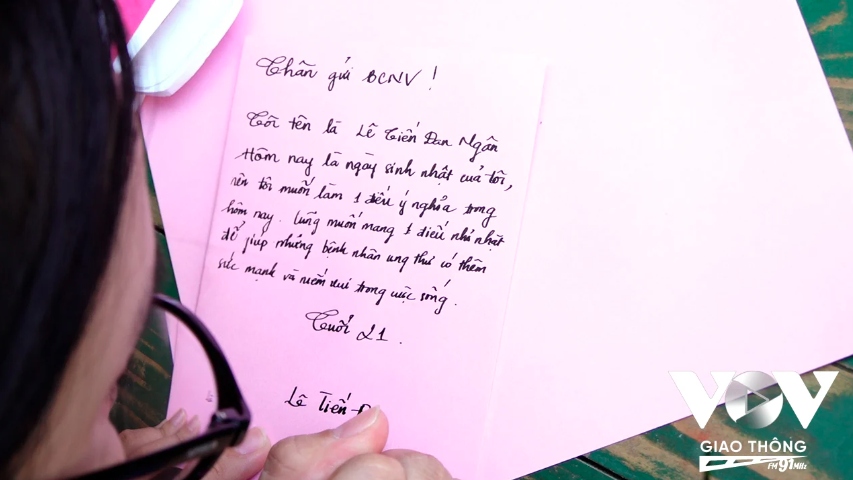 Chân gửi BCNV !
Tôi tên là Lê Tiến Đan Ngân
Hôm nay là ngày sinh nhật của tôi,
nên tôi muốn làm 1 điều ý nghĩa trong
hôm nay. Cũng muốn mang 1 điều nhỏ nhặt
để giúp những bệnh nhân ung thư có thêm
sức mạnh và niềm vui trong cuộc sống.
Tuổi 21.
Lê Tiến
VOV
GIAO THÔNG
FM 91 MHz